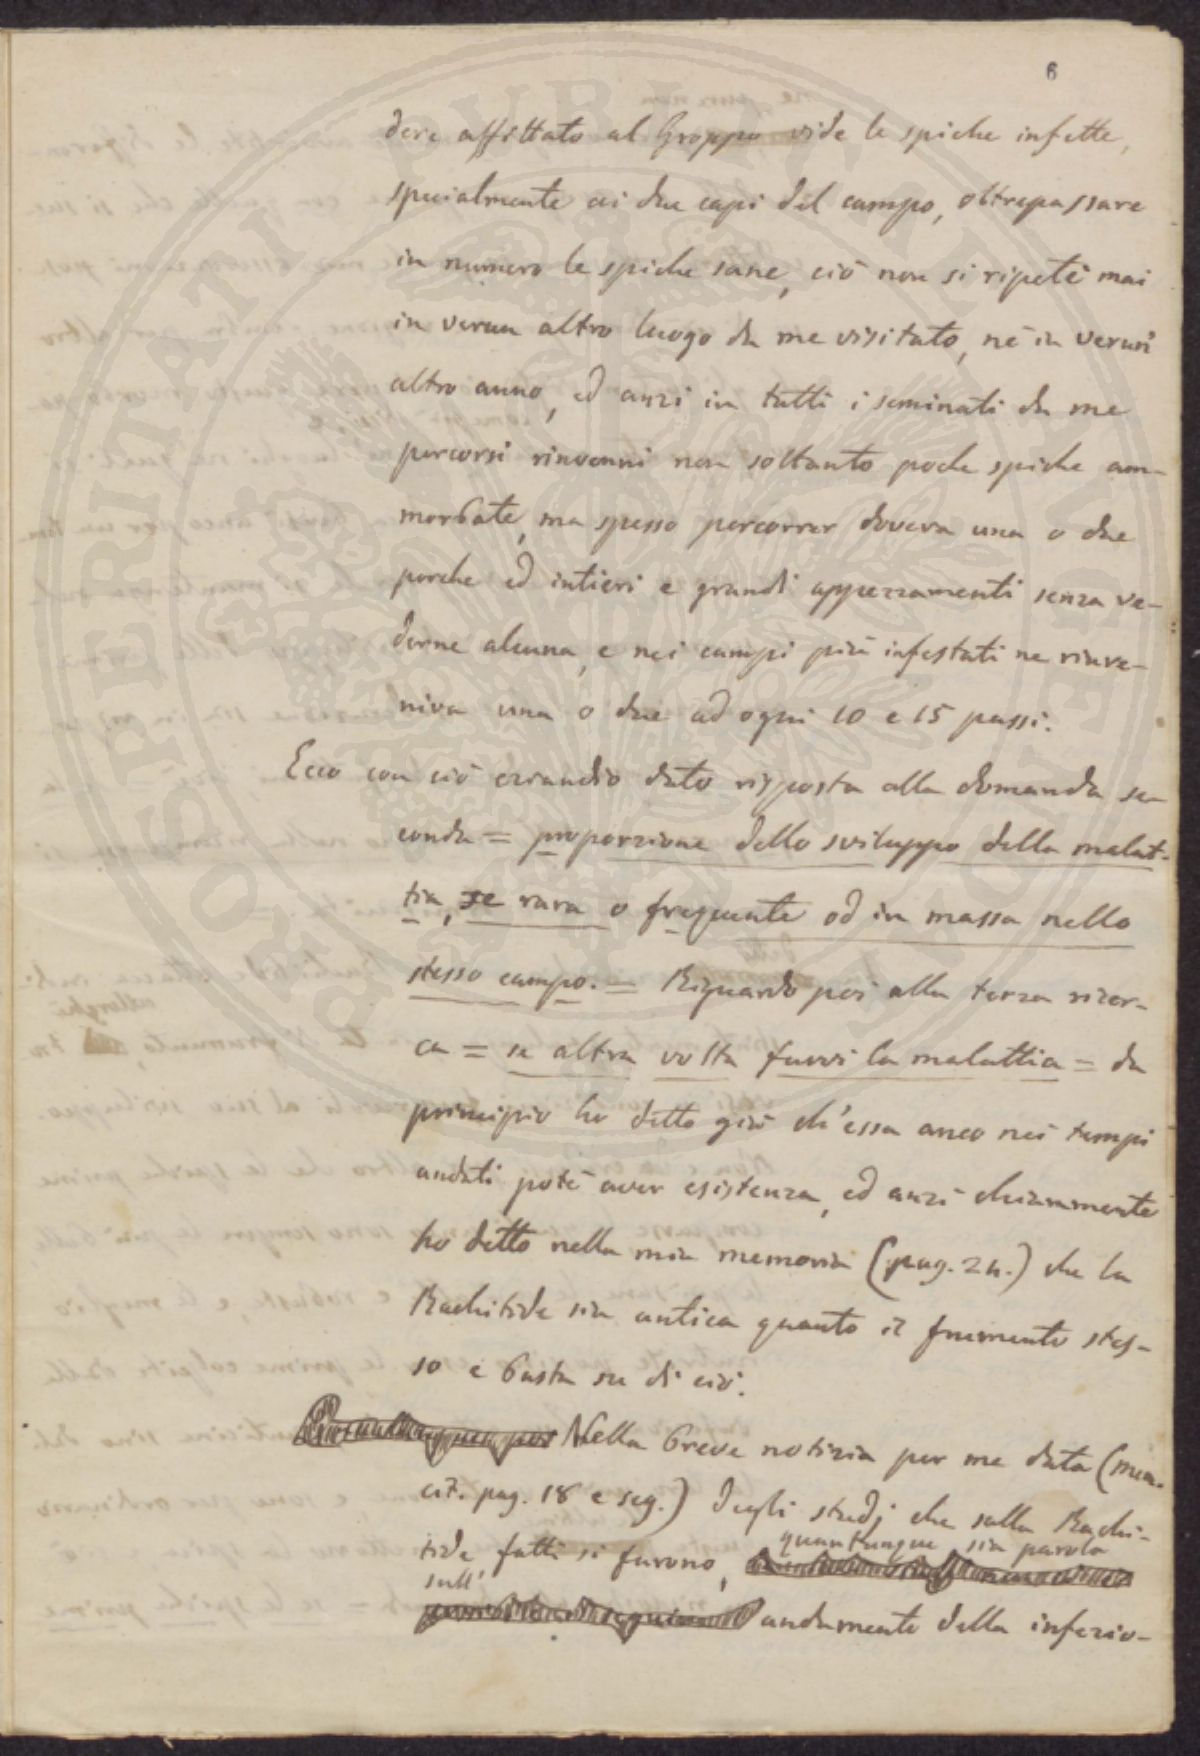 6
dere affittato al Groppo vide le spiche infette,
specialmente ai due capi del campo, oltrepassare
in numero le spiche sane, ciò non si ripetè mai
in verun altro luogo da me visitato, nè in verun
altro anno, ed anzi in tutti i seminati da me
percorsi rinvenni non soltanto poche spiche am-
morbate, ma spesso percorrer doveva una o due
porche ed intieri e grandi appezzamenti senza ve-
derne alcuna, e nei campi più infestati ne rinve-
niva una o due ad ogni 10 e 15 passi.
Ecco con ciò eziandio dato risposta alla domanda se-
conda = proporzione dello sviluppo della malat-
tia, se rara o frequente od in massa nello
stesso campo. = Riguardo poi alla terza ricer-
ca = se altra volta fuvvi la malattia = da
principio ho detto già ch'essa anco nei tempi
andati potè aver esistenza, ed anzi chiaramente
ho detto nella mia memoria (pag. 24.) che la
Rachitide sia antica quanto il frumento stes-
so e basta su di ciò.
Nella breve notizia per me data (mem.
cit. pag. 18 e seg.) degli studj che sulla Rachi-
tide fatti si furono, quantunque sia parola
sull' andamento della inferio-
PROSPERITATI PUBLICAE